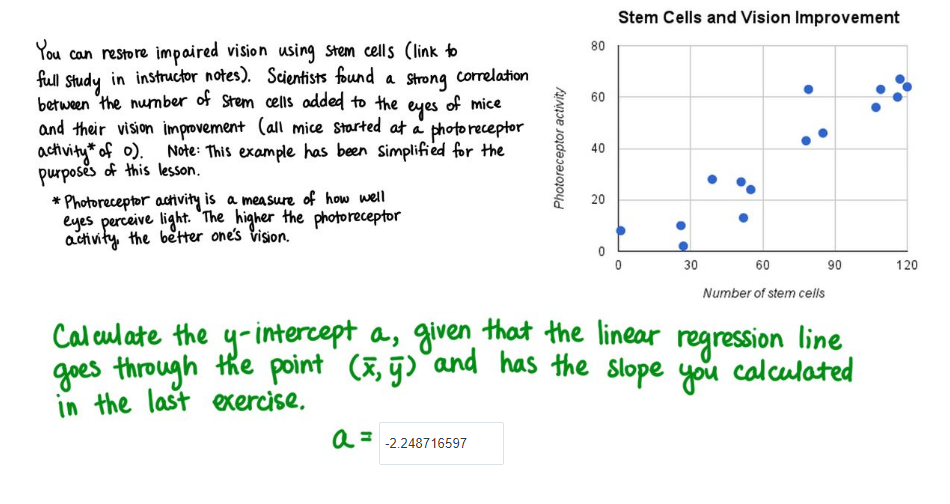 Stem Cells and Vision Improvement
You can restore impaired vision using stem cells (link to
full study in instructor notes). Scientists found a strong correlation
between the number of stem cells added to the eyes of mice
and their vision improvement (all mice started at a photoreceptor
activity* of 0). Note: This example has been simplified for the
purposes of this lesson.
* Photoreceptor activity is a measure of how well
eyes perceive light. The higher the photoreceptor
activity, the better one's vision.
Photoreceptor activity
80
60
40
20
0
0 30 60 90 120
Number of stem cells
Calculate the y-intercept a, given that the linear regression line
goes through the point (x̄, ȳ) and has the slope you calculated
in the last exercise.
a = -2.248716597